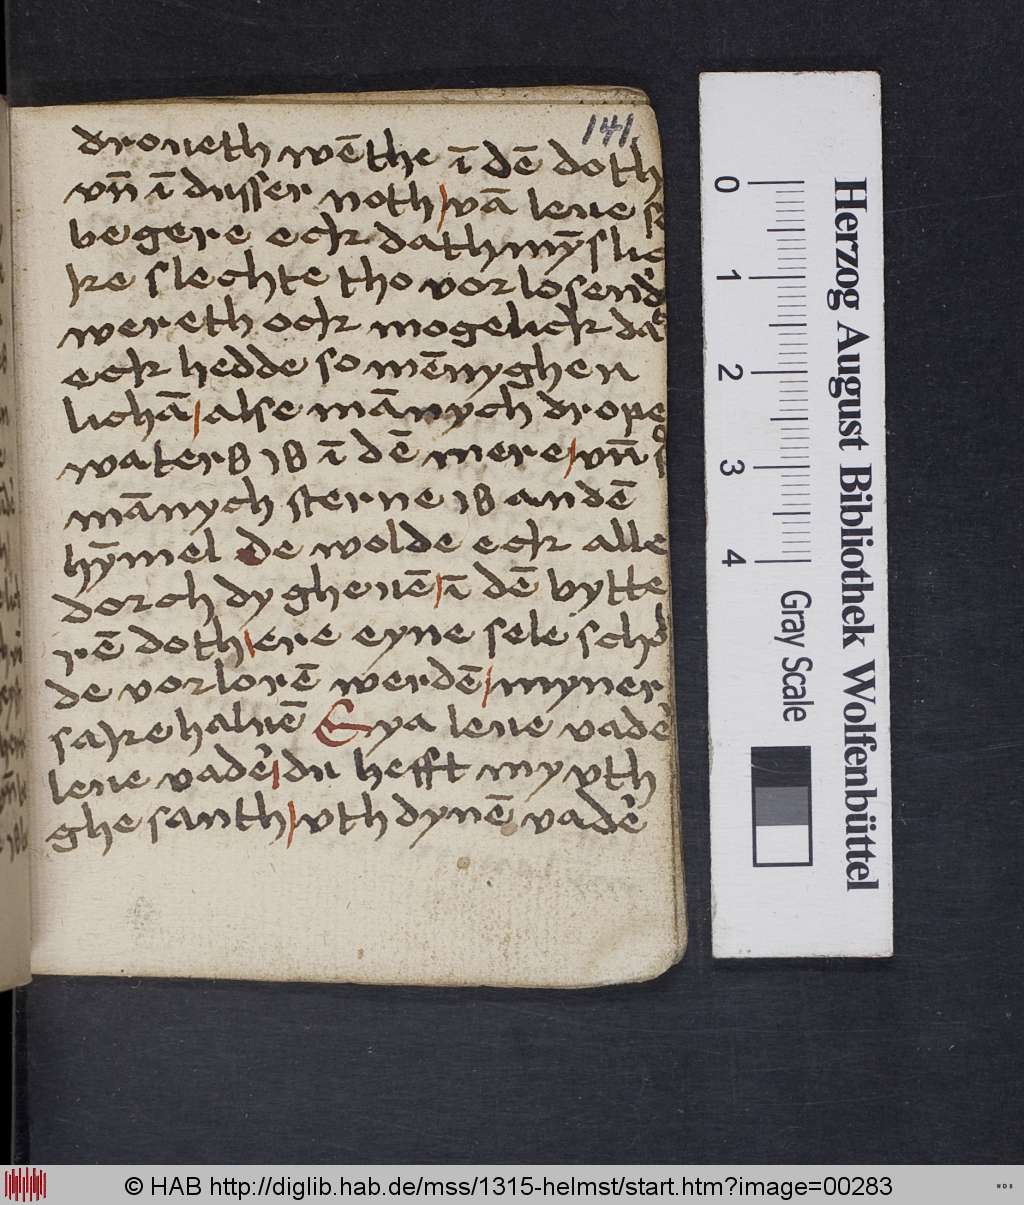 141.
droueth wēthe ī dē doth
vn̄ ī dusser noth vā leue
begere eck dath mȳslic
ke slechte tho vorlosend
wereth ock mogelick dat
eck hedde so mēnyghen
lichā alse mānych drope
waters is ī dē mere vn̄ s
mānych sterne is an dē
hȳmel de wolde eck alle
dorch dy gheuē ī dē bytte
rē doth ere eyne sele schol
de vorlorē werdē myner
sake haluē Eya leue vade
leue vade du hefft my vth
ghe santh vth dynē vade
0 1 2 3 4
Herzog August Bibliothek Wolfenbüttel
Gray Scale
© HAB http://diglib.hab.de/mss/1315-helmst/start.htm?image=00283